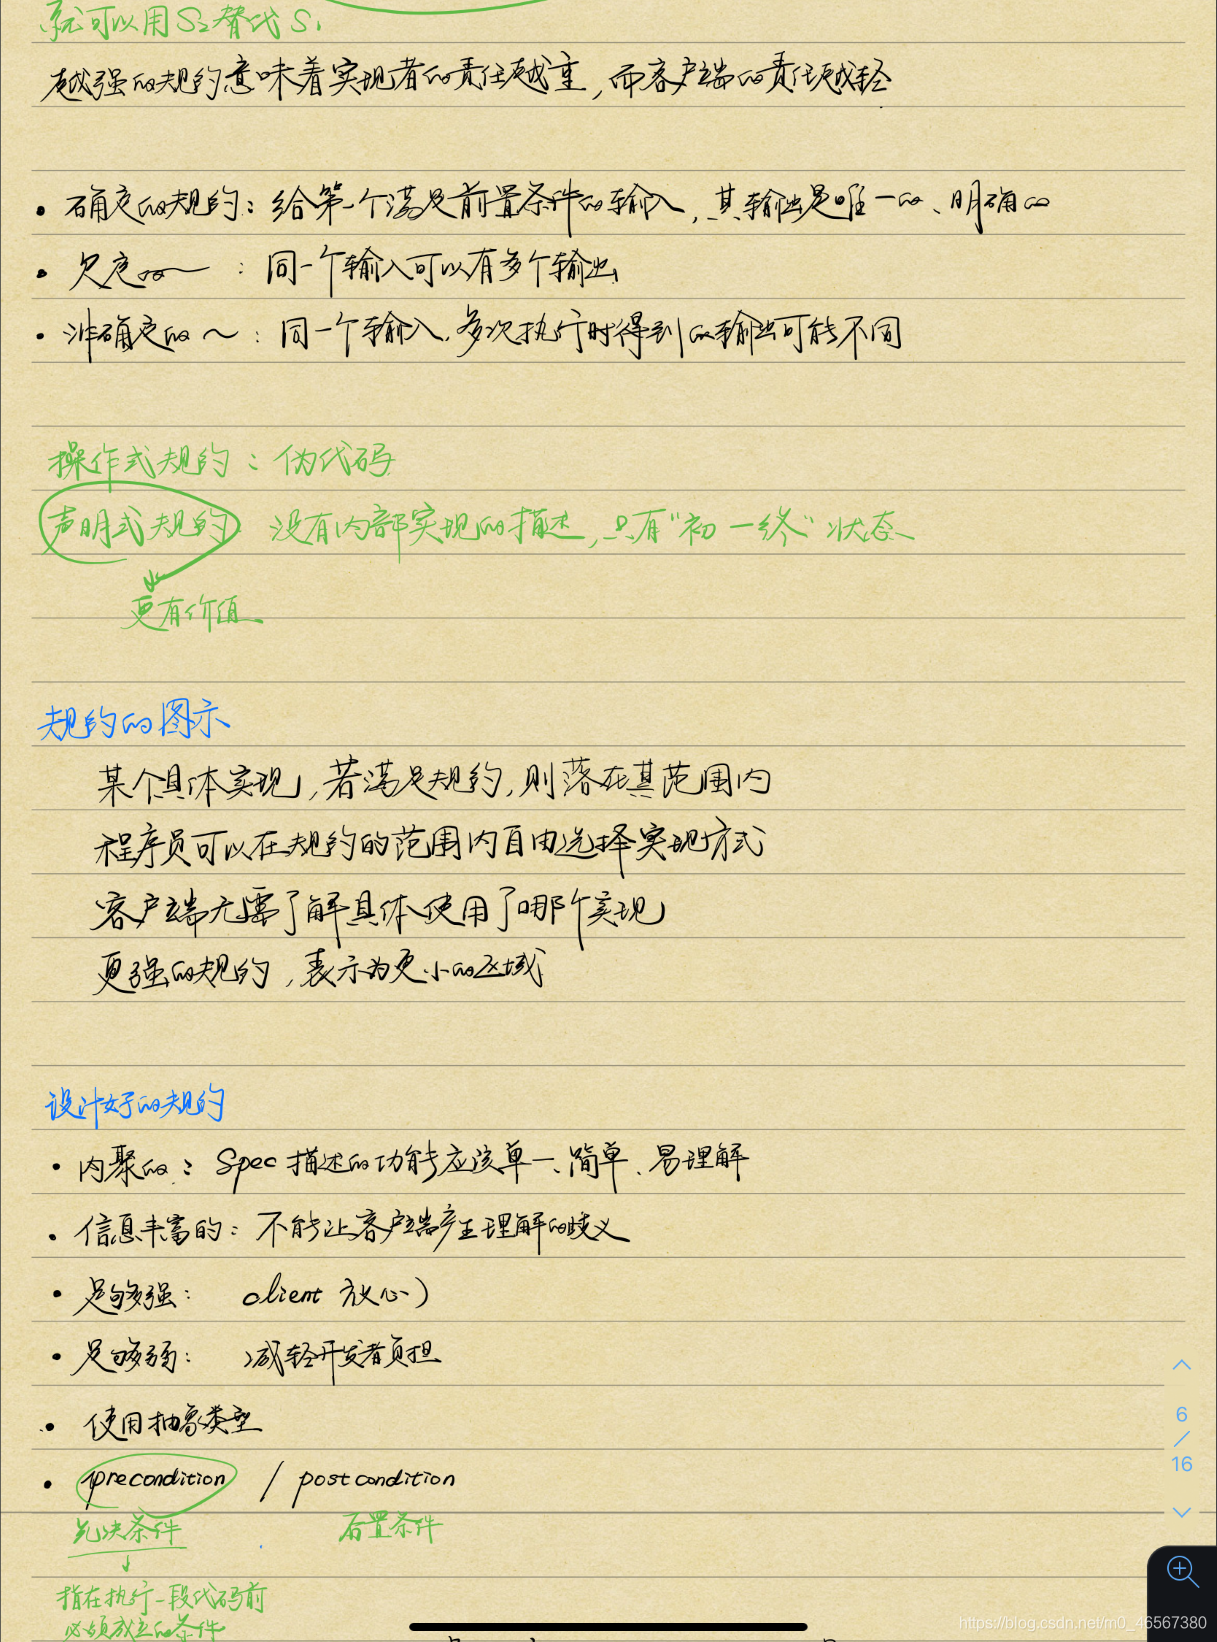 就可以用S₂替代S₁
越强的规约意味着实现者的责任越重,而客户端的责任越轻
• 确定的规约: 给第一个满足前置条件的输入, 其输出是唯一的、明确的
• 欠定的~ : 同一个输入可以有多个输出
• 非确定的 ~ : 同一个输入, 多次执行时得到的输出可能不同
操作式规约: 伪代码
声明式规约 没有内部实现的描述, 只有"初—终"状态
更有价值
规约的图示
某个具体实现, 若满足规约, 则落在其范围内
程序员可以在规约的范围内自由选择实现方式
客户端无需了解具体使用了哪个实现
更强的规约, 表示为更小的区域
设计好的规约
• 内聚的: Spec描述的功能应该单一、简单、易理解
• 信息丰富的: 不能让客户端产生理解的歧义
• 足够强: client 放心)
• 足够弱: 减轻开发者负担
• 使用抽象类型
• precondition / postcondition
先决条件 后置条件
指在执行一段代码前
必须成立的条件
6
/
16
https://blog.csdn.net/m0_46567380